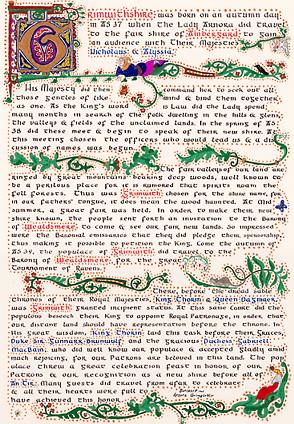 Grimwithshire, was born on an autumn day
in AS 37 when The Lady Arnora did travel
to the fair shire of Ambergard to gain
an audience with Their Majesties
Nicholaus & Alyssia.
His Majesty did then command her to seek out all
those gentles of like mind & bind them together
as one. As the King's word is Law did the Lady spend
many months in search of the folk dwelling in the hills & glens,
the valleys & fields of the unclaimed lands. In the spring of AS
38 did these meet & begin to speak of their new shire. At
this meeting chosen the officers who would lead us & a dis
cussion of names was begun.
The fair valley of our land are
ringed by great mountains bearing deep woods, well known to
be a perilous place for it is rumored that spirits roam the
fell forests. Thus was Grimwith chosen for the shire name, for
in our fathers' tongue, it does mean the wood haunted. At Mid
summer, a great fair was held. In order to make their new
shire known, the people sent forth an invitation to the Barony
of Wealdsmere to come & see our fair new lands. So impressed
were the Baronial emissaries that they did pledge them sponsorship,
thus making it possible to petition the King. Come the autumn of
AS 39, the populace of Grimwith did travel to the
Barony of Wealdsmere for the great
Tournament of Ravens.
There, before the dread sable
thrones of their Royal Majesties, King Thorin & Queen Dagmaer,
was Grimwith granted incipient status. At this same Court did the
populous beseech their King to Support Royal Patronage, in order that
our distant land should have representation before the throne. In
His great wisdom, King Thorin laid this task before Their Graces
Duke Sir Gunnarr Brunwulf and the gracious Duchess Gabriell
MacBain, who did well know our populace & accepted gladly amid
much rejoicing, for our Patrons are beloved in this land. The pop
ulace threw a great celebration feast in honor of our
Patrons & our recognition as a new shire before all of
An Tir. Many guests did travel from afar to celebrate
& all their hearts were full to
have achieved this honor.